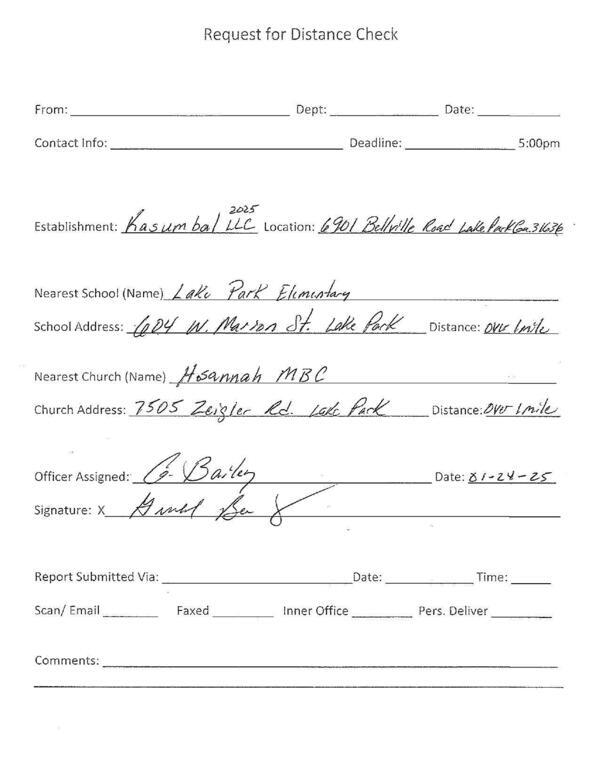 Request for Distance Check
From: Dept: Date:
Contact Info: Deadline: 5:00pm
2025
Establishment: Kasumbal LLC Location: 6901 Bellville Road Lake Park Ga. 31636
Nearest School (Name) Lake Park Elementary
School Address: 604 W. Marion St. Lake Park Distance: over 1 mile
Nearest Church (Name) Hosannah MBC
Church Address: 7505 Zeigler Rd. Lake Park Distance: over 1 mile
Officer Assigned: G. Bailey Date: 01-24-25
Signature: X
Report Submitted Via: Date: Time:
Scan/ Email Faxed Inner Office Pers. Deliver
Comments: